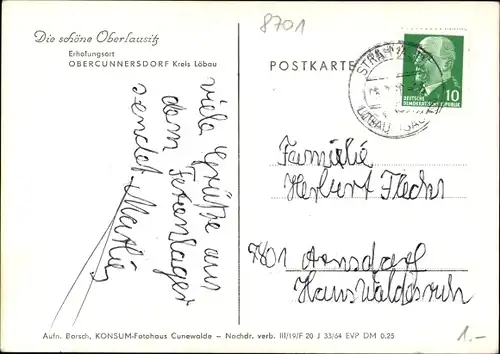 8701
Die schöne Oberlausitz
Erholungsort
OBERCUNNERSDORF Kreis Löbau
POSTKARTE
DEUTSCHE
DEMOKRATISCHE REPUBLIK
10
viele Grüße aus
dem Ferienlager
sendet Marlies
Familie
Herbert
7801 Arnsdorf
Haus Waldesruh
1.-
Aufn. Borsch, KONSUM-Fotohaus Cunewalde – Nachdr. verb. III/19/F 20 J 33/64 EVP DM 0.25